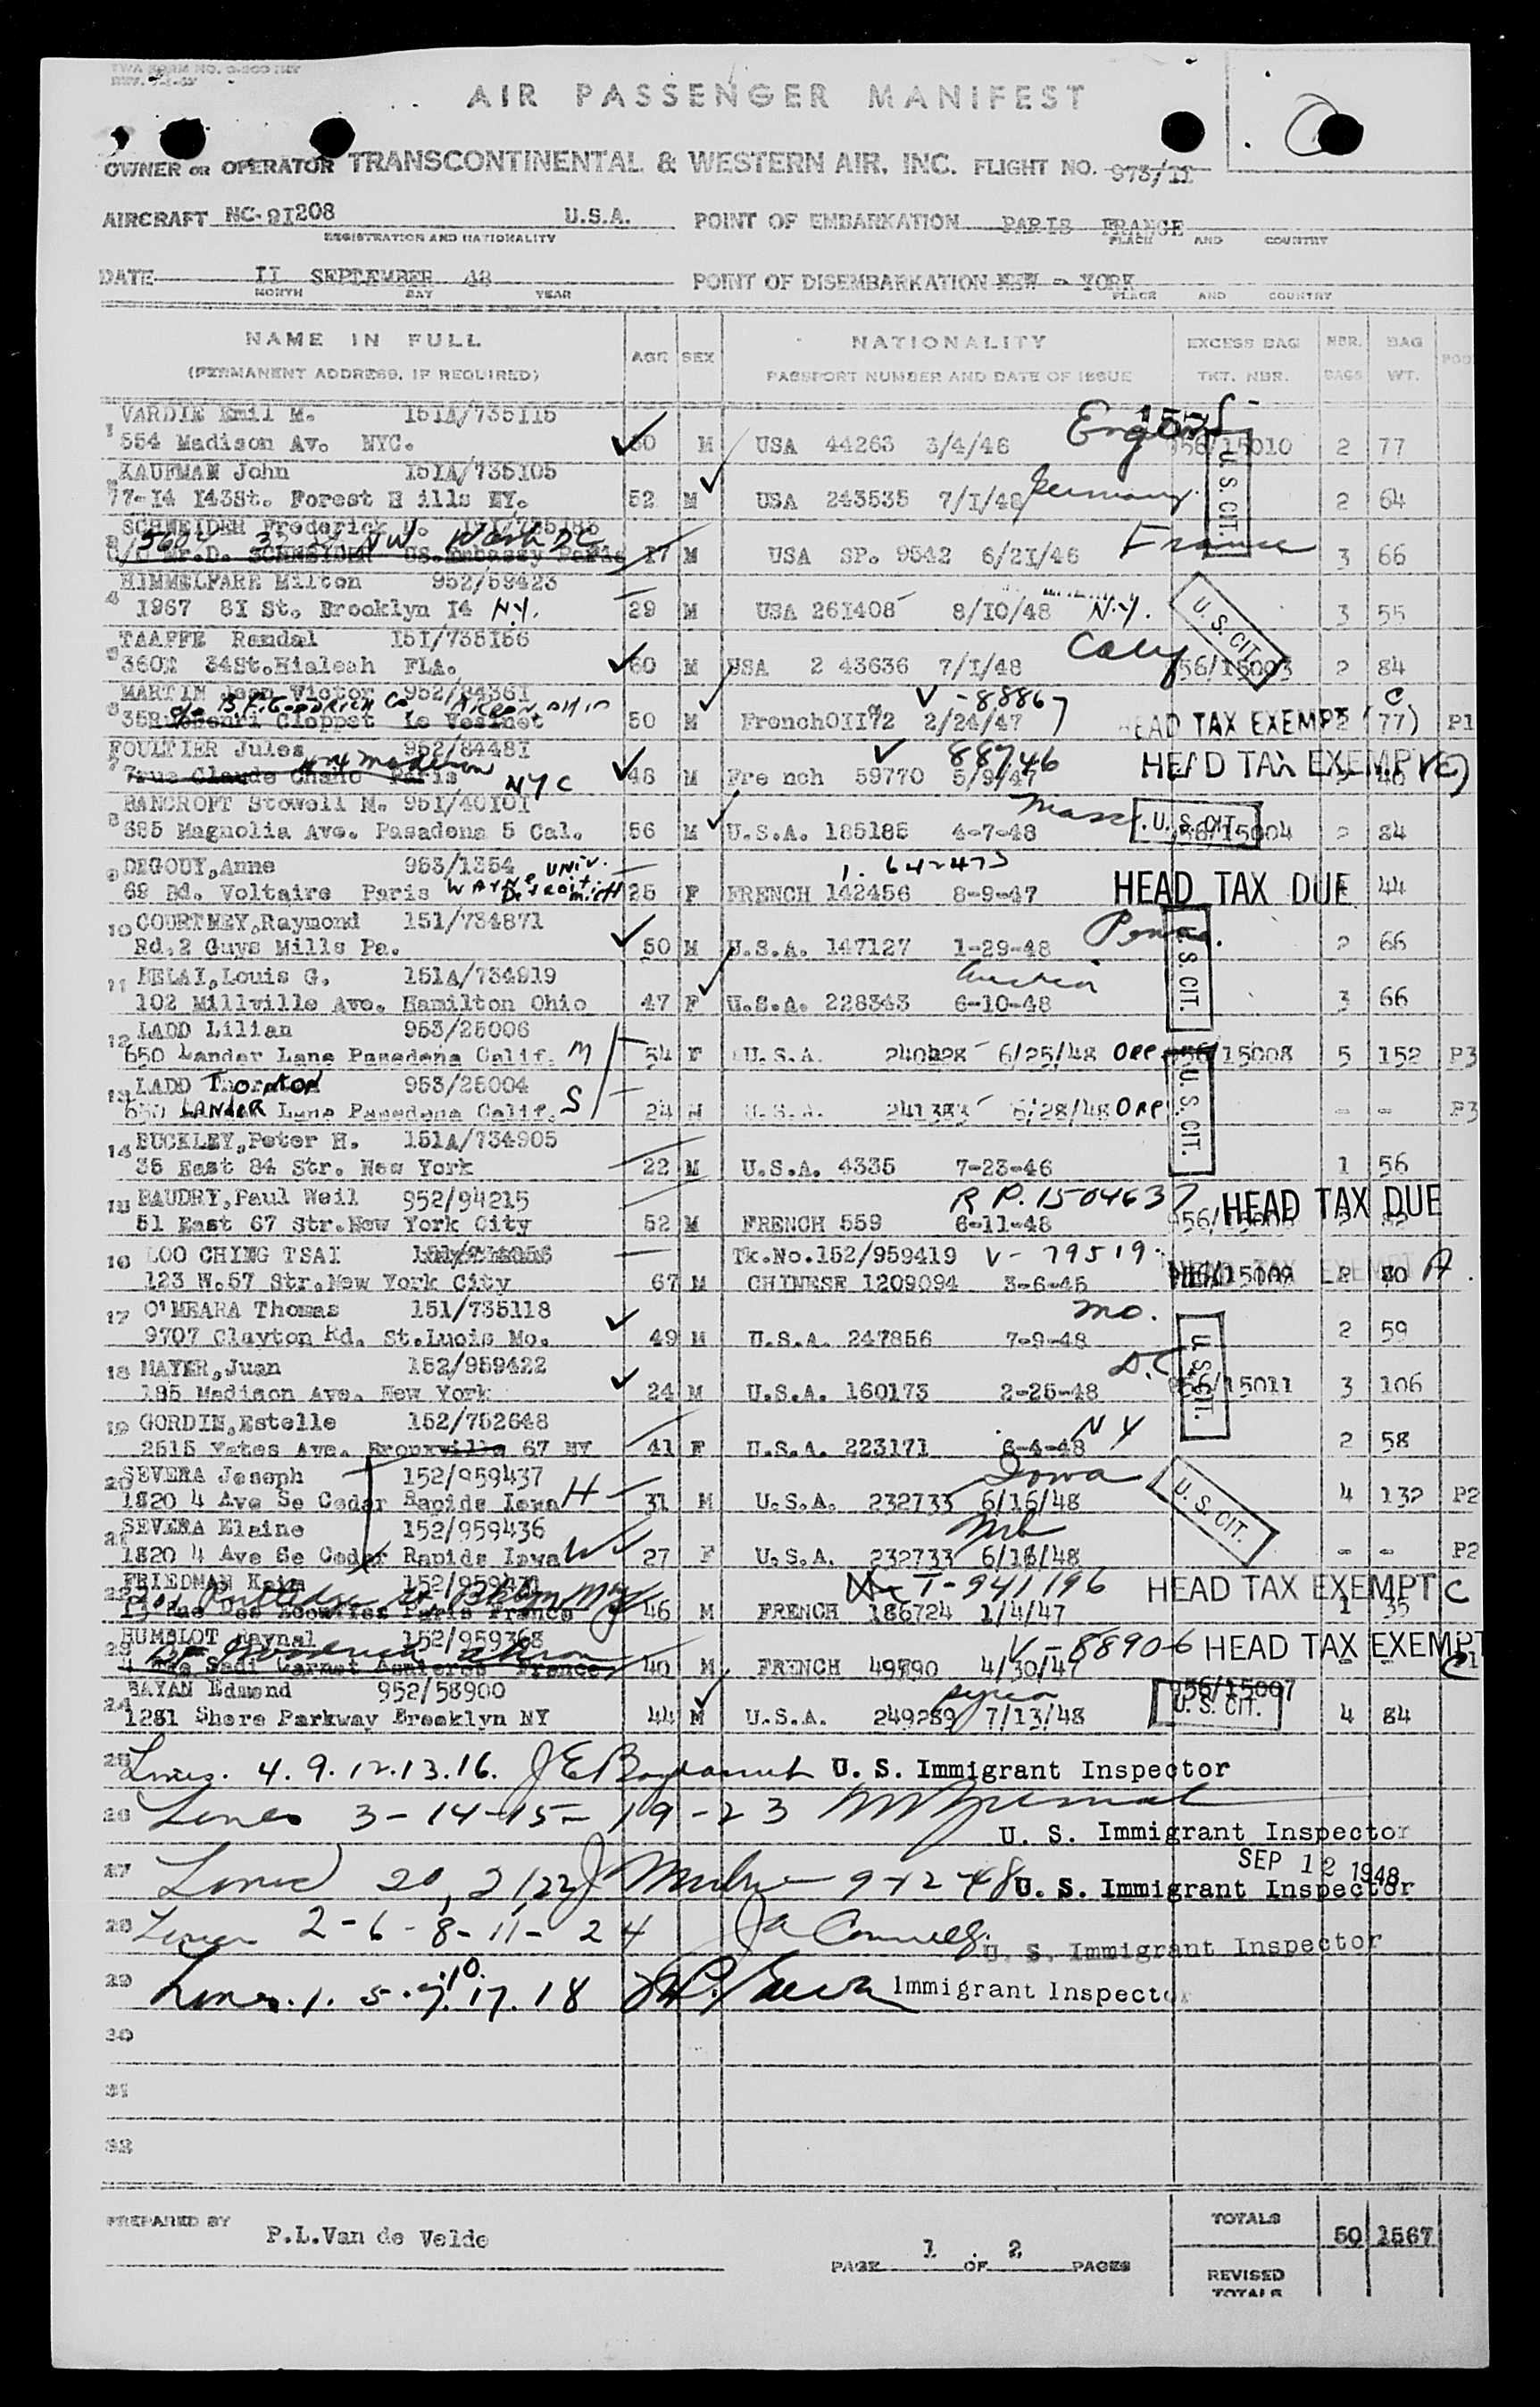 AIR PASSENGER MANIFEST
OWNER OR OPERATOR TRANSCONTINENTAL & WESTERN AIR, INC. FLIGHT NO. 973/II
AIRCRAFT NC-9I208 U.S.A. POINT OF EMBARKATION PARIS FRANCE
REGISTRATION AND NATIONALITY PLACE AND COUNTRY
DATE II SEPTEMBER 48 POINT OF DISEMBARKATION NEW - YORK
MONTH DAY YEAR PLACE AND COUNTRY
NAME IN FULL AGE SEX NATIONALITY EXCESS BAG NBR. BAG
(PERMANENT ADDRESS, IF REQUIRED) PASSPORT NUMBER AND DATE OF ISSUE TKT. NBR. BAGS WT.
VARDIN Emil M. 151A/735115
1 554 Madison Av. NYC. M USA 44263 3/4/48 956/15010 2 77
U.S. CIT.
KAUFMAN John 151A/735105
77-I4 I43St. Forest H ills NY. 52 M USA 243535 7/I/48 Germany 2 64
SCHNEIDER Frederick
3 Wash DC SCHNEIDER US.Embassy I7 M USA SP. 9542 6/2I/46 France 3 66
HIMMELFARE Milton 952/59423
4 I967 8I St. Brooklyn I4 N.Y. 29 M USA 26I408 8/I0/48 N.Y. 3 55
U.S. CIT.
TAAFFE Randal I5I/735I56
5 360E 34St.Hialeah FLA. 60 M USA 2 43636 7/I/48 956/15003 2 84
MARTIN Jean Victor 952/8436I V-88867
c/o B.F. GOODRICH Co AKRON OHIO
6 Cloppet Le Vesinet 50 M FrenchOII72 2/24/47 HEAD TAX EXEMPT (C) 77 P1
FOULTIER Jules 952/8448I V 88746
7 rue Claude Paris Madison NYC 48 M Fre nch 59770 5/9/47 HEAD TAX EXEMPT (C)
BANCROFT Stowell M. 95I/40I0I Mass
8 385 Magnolia Ave. Pasadena 5 Cal. 56 M U.S.A. 185185 4-7-48 U.S. CIT. 956/15004 2 84
9 DEGOUY,Anne 953/1354 WAYNE UNIV. Detroit Mich 1. 642473
69 Bd. Voltaire Paris 25 F FRENCH 142456 8-9-47 HEAD TAX DUE 44
10 COURTNEY,Raymond 151/734871
Rd.2 Guys Mills Pa. 50 M U.S.A. 147127 1-29-48 Penna. 2 66
U.S. CIT.
11 HELAI,Louis G. 151A/734919 Austria
102 Millville Ave. Hamilton Ohio 47 F U.S.A. 228343 6-10-48 3 66
12 LADD Lilian 953/25006
650 Lander Lane Pasadena Calif. M 54 F U.S.A. 240228 6/25/48 ORE 956/15008 5 152 P3
13 LADD THORNTON 953/25004
650 LANDER Lane Pasadena Calif. S 24 M U.S.A. 241383 6/28/48 ORE - - P3
U.S. CIT.
14 BUCKLEY,Peter H. 151A/734905
35 East 84 Str. New York 22 M U.S.A. 4335 7-23-46 1 56
15 BAUDRY,Paul Weil 952/94215 R.P. 1504637 HEAD TAX DUE
51 East 67 Str.New York City 52 M FRENCH 559 6-11-48
16 LOO CHING TSAI Tk.No.152/959419 V-79519
123 W.57 Str.New York City 67 M CHINESE 1209094 3-6-45 HEAD TAX EXEMPT 2 80 A
17 O'MEARA Thomas 151/735118 Mo.
9707 Clayton Rd. St.Luois Mo. 49 M U.S.A. 247856 7-9-48 2 59
U.S. CIT.
18 MAYER,Juan 152/959422 D.C.
195 Madison Ave. New York 24 M U.S.A. 160173 2-25-48 956/15011 3 106
19 GORDIN,Estelle 152/752648 NY
2515 Yates Ave. Bronxville 67 NY 41 F U.S.A. 223171 6-4-48 2 58
20 SEVERA Joseph 152/959437 Iowa
1820 4 Ave Se Cedar Rapids Iowa H 31 M U.S.A. 232733 6/16/48 4 132 P2
U.S. CIT.
21 SEVERA Elaine 152/959436
1820 4 Ave Se Cedar Rapids Iowa W 27 F U.S.A. 232733 6/16/48 - - P2
22 FRIEDMAN T-941196 HEAD TAX EXEMPT C
Paris France 46 M FRENCH 186724 1/4/47 1 35
23 HUMBLOT Raynal 152/959368 V-88906 HEAD TAX EXEMPT
Sadi Carnot Asnieres France 40 M FRENCH 49890 4/30/47 - - P1
BAYAN Edmond 952/58900 Syria 956/15007
24 1281 Shore Parkway Brooklyn NY 44 M U.S.A. 249289 7/13/48 U.S. CIT. 4 84
25 Lines. 4. 9. 12. 13. 16. U. S. Immigrant Inspector
26 Lines 3-14-15-19-23
U. S. Immigrant Inspector
SEP 12 1948
27 Lines 20, 21 22 9-12-48 U. S. Immigrant Inspector
28 Lines 2-6-8-11-24 U. S. Immigrant Inspector
29 Lines. 1. 5. 7. 10. 17. 18 Immigrant Inspector
30
31
32
PREPARED BY P.L.Van de Velde TOTALS 50 1567
PAGE 1 OF 2 PAGES
REVISED TOTALS